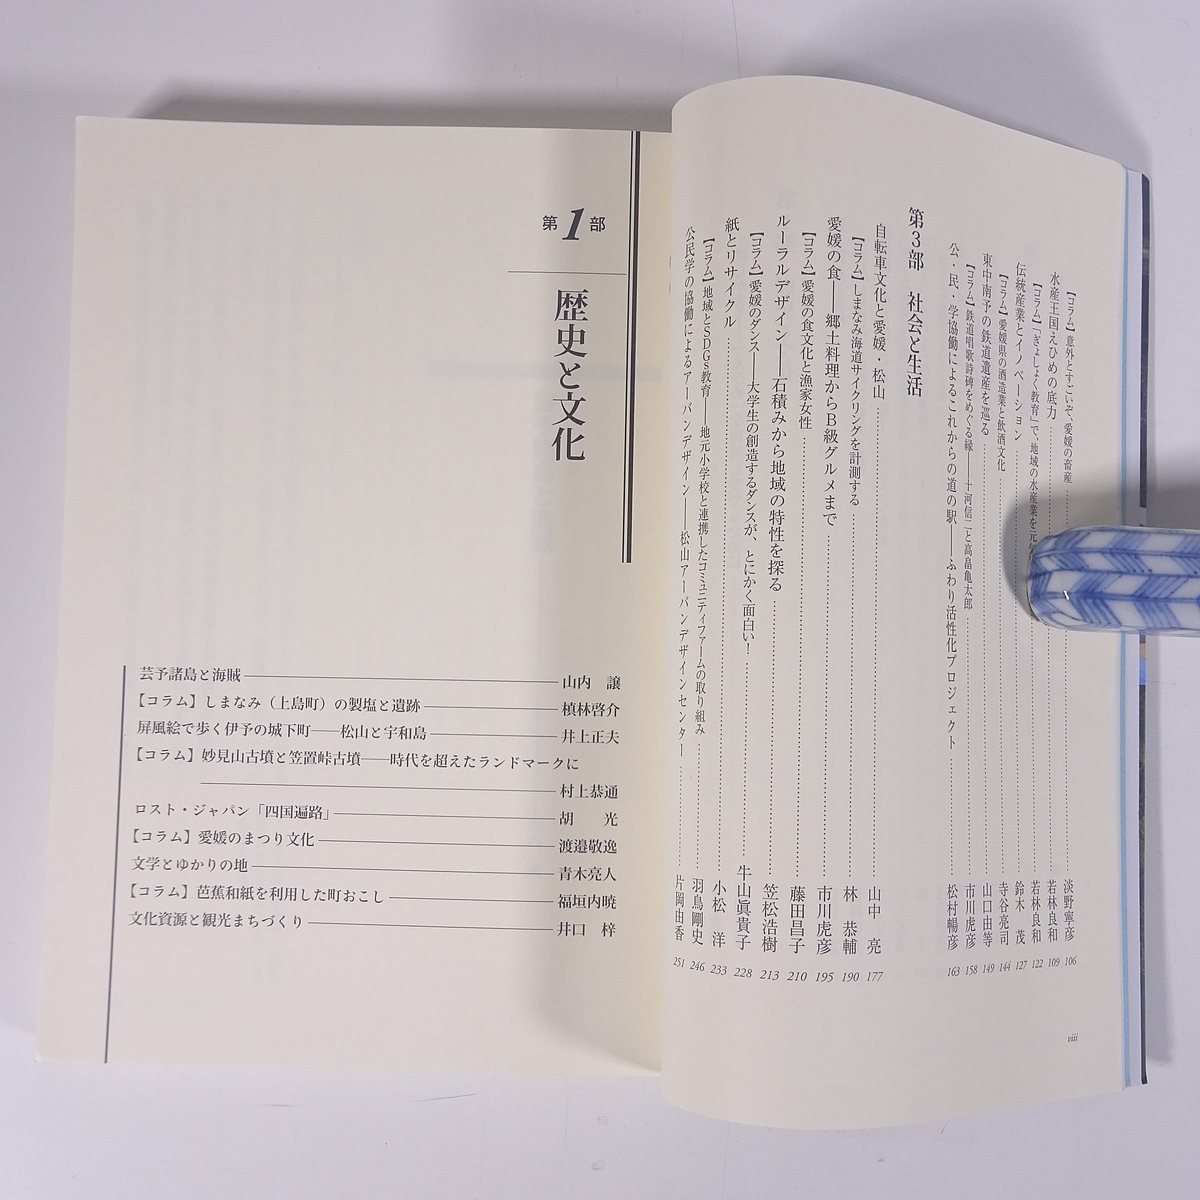 【コラム】意外とすごいぞ、愛媛の畜産 淡野寧彦 106
水産王国えひめの底力 若林良和 109
【コラム】「ぎょしょく教育」で、地域の水産業を元気 若林良和 122
伝統産業とイノベーション 鈴木 茂 127
【コラム】愛媛県の酒造業と飲酒文化 寺谷亮司 144
東中南予の鉄道遺産を巡る 山口由等 149
【コラム】鉄道唱歌詩碑をめぐる縁――十河信二と高畠亀太郎 市川虎彦 158
公・民・学協働によるこれからの道の駅――ふわり活性化プロジェクト 松村暢彦 163
第3部 社会と生活
自転車文化と愛媛・松山 山中 亮 177
【コラム】しまなみ海道サイクリングを計測する 林 恭輔 190
愛媛の食――郷土料理からB級グルメまで 市川虎彦 195
【コラム】愛媛の食文化と漁家女性 藤田昌子 210
ルーラルデザイン――石積みから地域の特性を探る 笠松浩樹 213
【コラム】愛媛のダンス――大学生の創造するダンスが、とにかく面白い！ 牛山眞貴子 228
紙とリサイクル 小松 洋 233
【コラム】地域とSDGs教育――地元小学校と連携したコミュニティファームの取り組み 羽鳥剛史 246
公民学の協働によるアーバンデザイン――松山アーバンデザインセンター 片岡由香 251
viii
第1部
歴史と文化
芸予諸島と海賊 山内 譲
【コラム】しまなみ（上島町）の製塩と遺跡 槙林啓介
屏風絵で歩く伊予の城下町――松山と宇和島 井上正夫
【コラム】妙見山古墳と笠置峠古墳――時代を超えたランドマークに
村上恭通
ロスト・ジャパン「四国遍路」 胡 光
【コラム】愛媛のまつり文化 渡邉敬逸
文学とゆかりの地 青木亮人
【コラム】芭蕉和紙を利用した町おこし 福垣内暁
文化資源と観光まちづくり 井口 梓